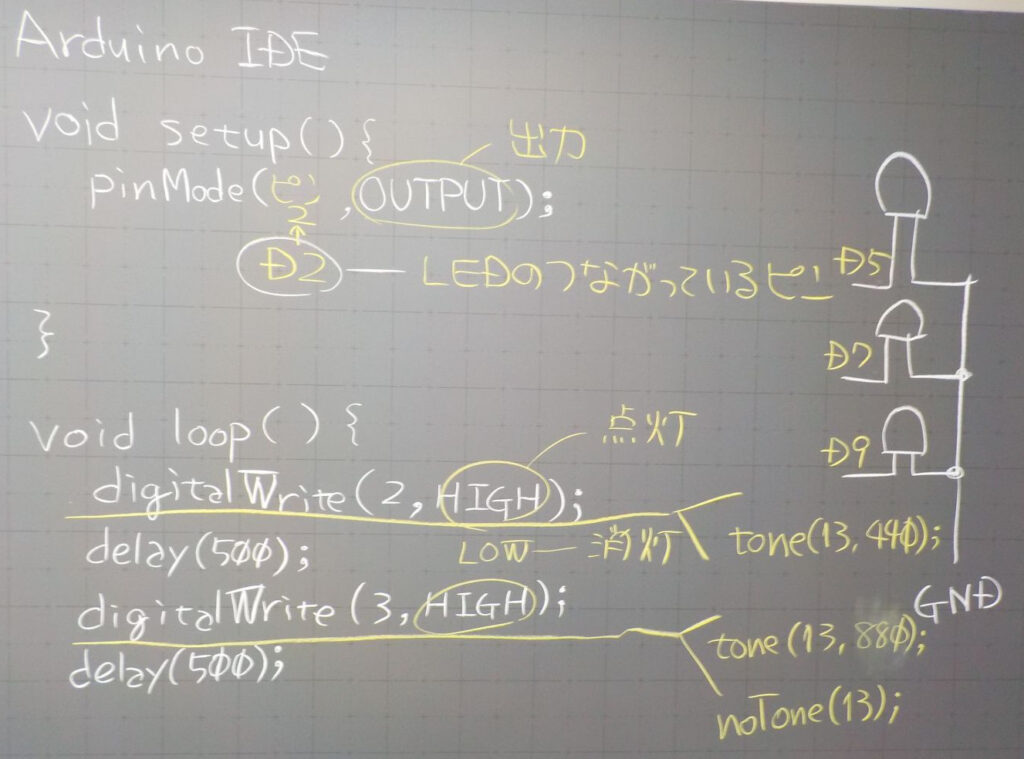 Arduino IDE
void setup(){
出力
pinMode(ピン,OUTPUT);
2
D2 — LEDのつながっているピン
}
void loop(){
点灯
digitalWrite(2,HIGH);
LOW — 消灯
tone(13,440);
delay(500);
digitalWrite(3,HIGH);
tone(13,880);
noTone(13);
delay(500);
D5
D7
D9
GND